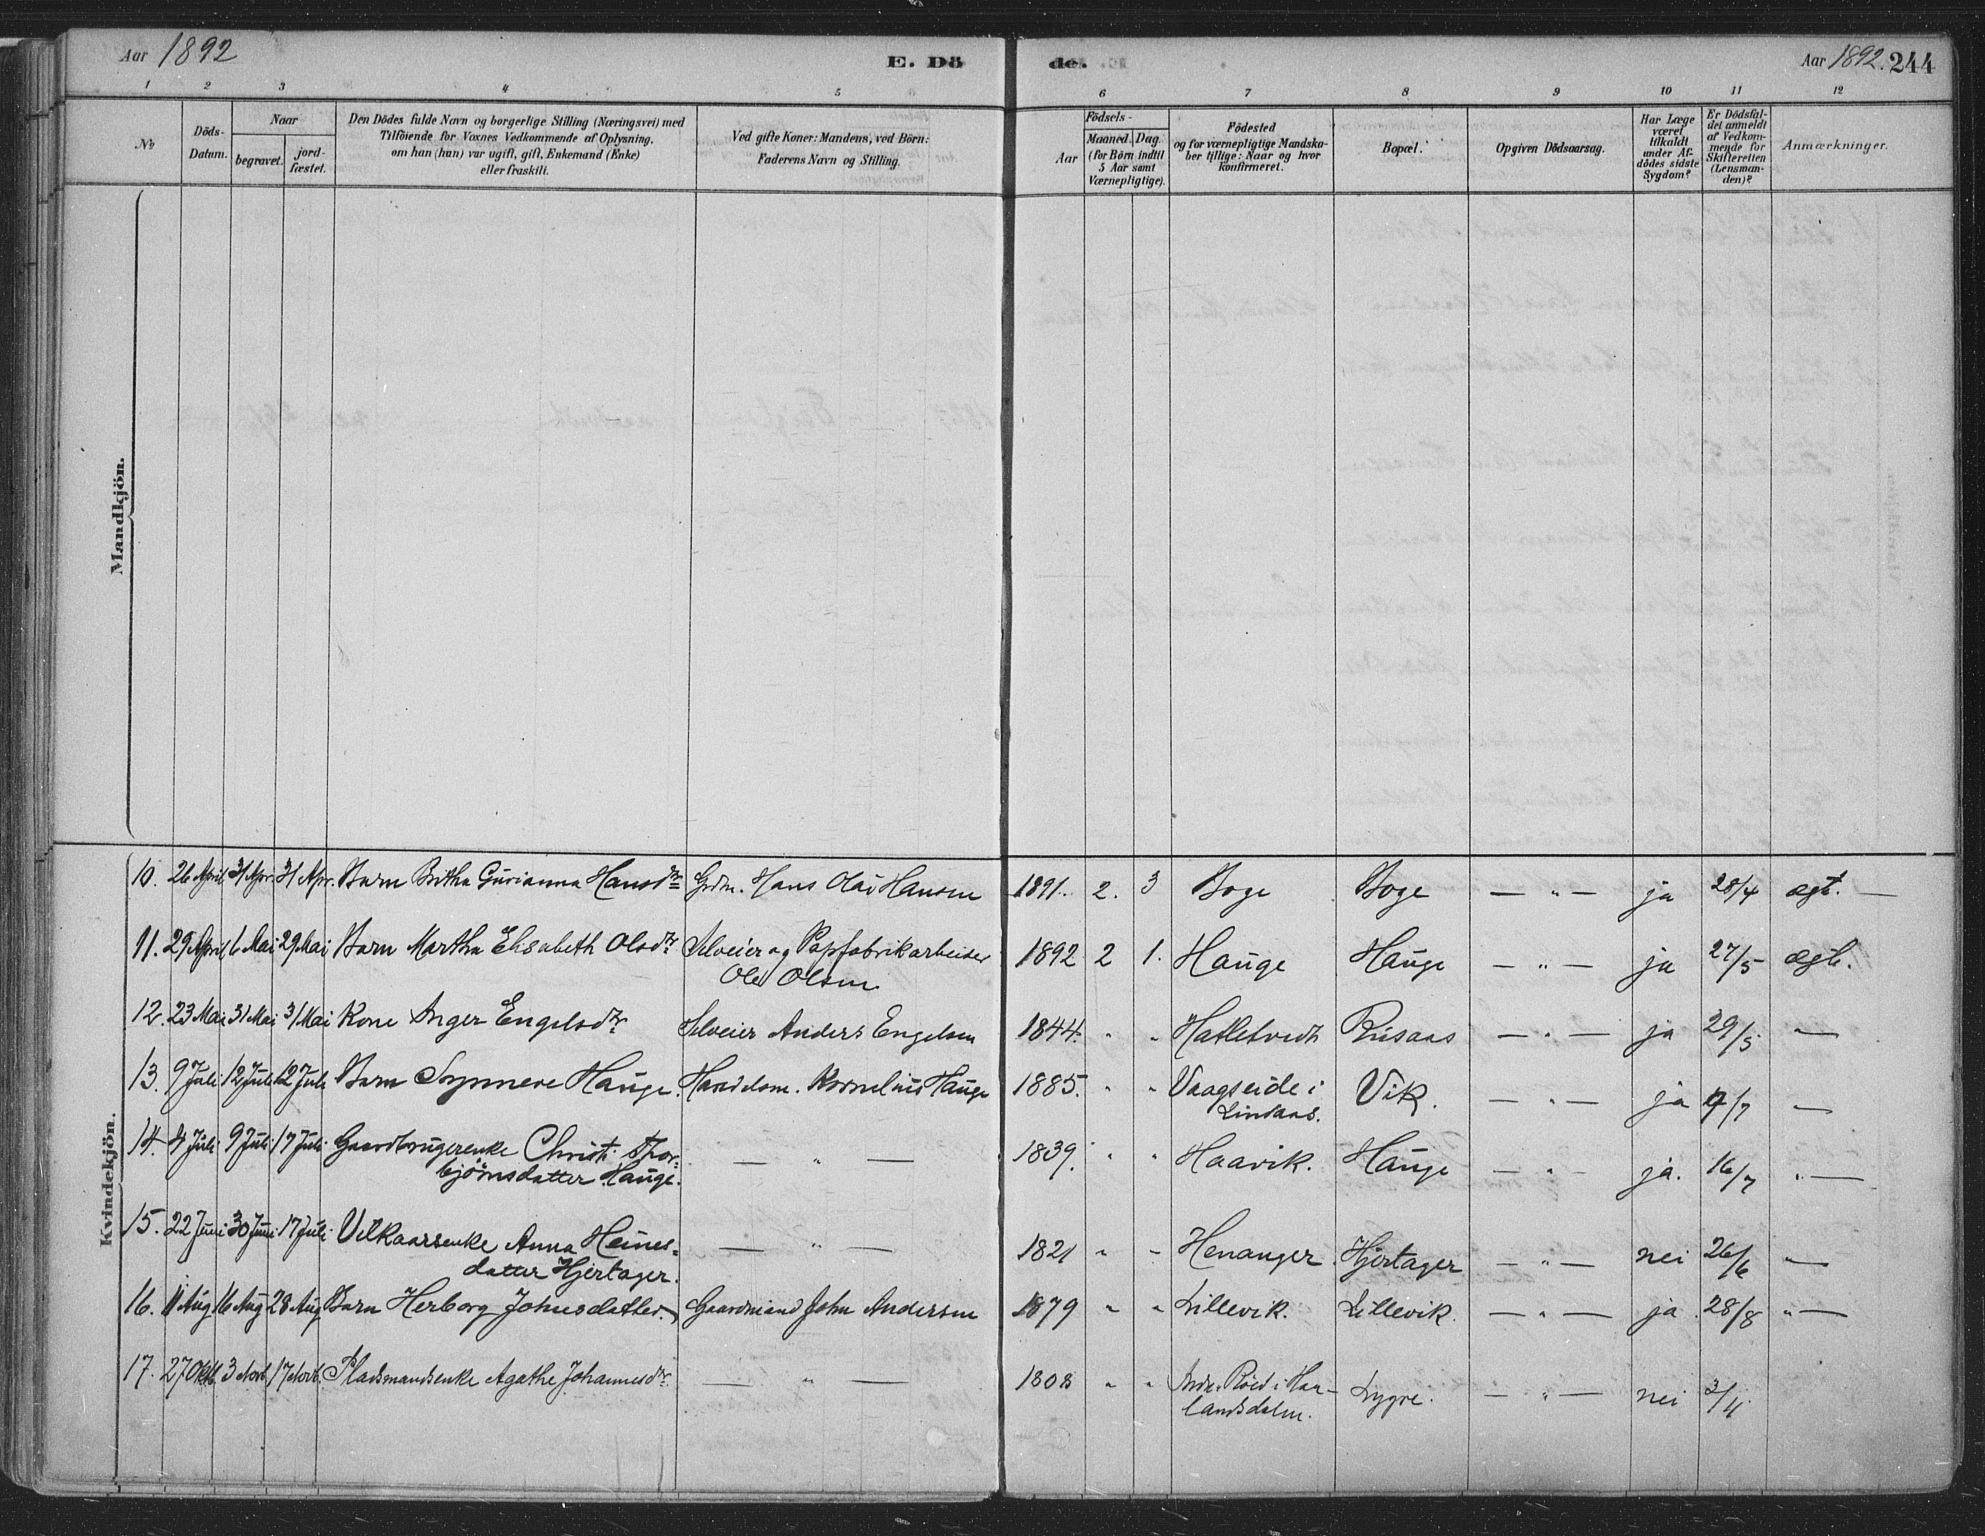 Aar 1892
E. Dö
de.
Aar 1892. 244
1 2 3 4 5 6 7 8 9 10 11 12
No
Döds-
Datum.
Naar
begravet.
jord-
fæstet.
Den Dödes fulde Navn og borgerlige Stilling (Næringsvei) med
Tilföiende for Voxnes Vedkommende af Oplysning,
om han (hun) var ugift, gift, Enkemand (Enke)
eller fraskilt.
Ved gifte Koner: Mandens, ved Börn:
Faderens Navn og Stilling.
Födsels-
Aar
Maaned. Dag.
(for Börn indtil
5 Aar samt
Værnepligtige).
Födested
og for værnepligtige Mandska-
ber tillige: Naar og hvor
konfirmeret.
Bopæl.
Opgiven Dödsaarsag.
Har Læge
været
tilkaldt
under Af-
dödes sidste
Sygdom?
Er Dödsfal-
det anmeldt
af Vedkom-
mende for
Skifteretten
(Lensman-
den)?
Anmærkninger.
Mandkjön.
Kvindekjön.
10. 26 April 31 Apr. 31 Apr. Barn Britha Gurianna Hansdr Grdm. Hans Olai Hansen 1891. 2. 3 Boge Boge — " — ja 28/4 ægt. —
11. 29 April 6 Mai 29 Mai Barn Martha Elisabeth Olsdr Selveier og Papfabrikarbeider
Ole Olsen 1892 2 1. Hauge Hauge — " — ja 27/5 ægte.
12. 23 Mai 31 Mai 31 Mai Kone Inger Engelsdr Selveier Anders Engelsen 1844. " " Hatletvedt Risaas — " — ja 29/5 —
13. 9 Juli 12 Juli 12 Juli Barn Synneve Hauge. Handelsm. Kornelius Hauge 1885. " " Vaagseide i
Lindaas. Vik. — " — ja 9/7 —
14. 4 Juli 9 Juli 17 Juli Gaardbrugerenke Christi Thor-
bjørnsdatter Hauge. — " — 1839. " " Haavik. Hauge — " — ja. 16/7 " —
15. 22 Juni 30 Juni 17 Juli Vilkaarsenke Anna Heines-
datter Hjertager. — " — 1821 " " Henanger Hjertager — " — nei 26/6 —
16. 11 Aug 16 Aug 28 Aug Barn Herborg Johnsdatter. Gaardmand John Andersen 1879 " " Lillevik. Lillevik. — " — ja 28/8 " —
17. 27 Oktb 3 Novb 17 Novb. Pladsmandsenke Agathe Johannesdr. — " — 1808 " " Indr. Röed i Haa-
landsdalen. Lygre. — " — nei 3/11.